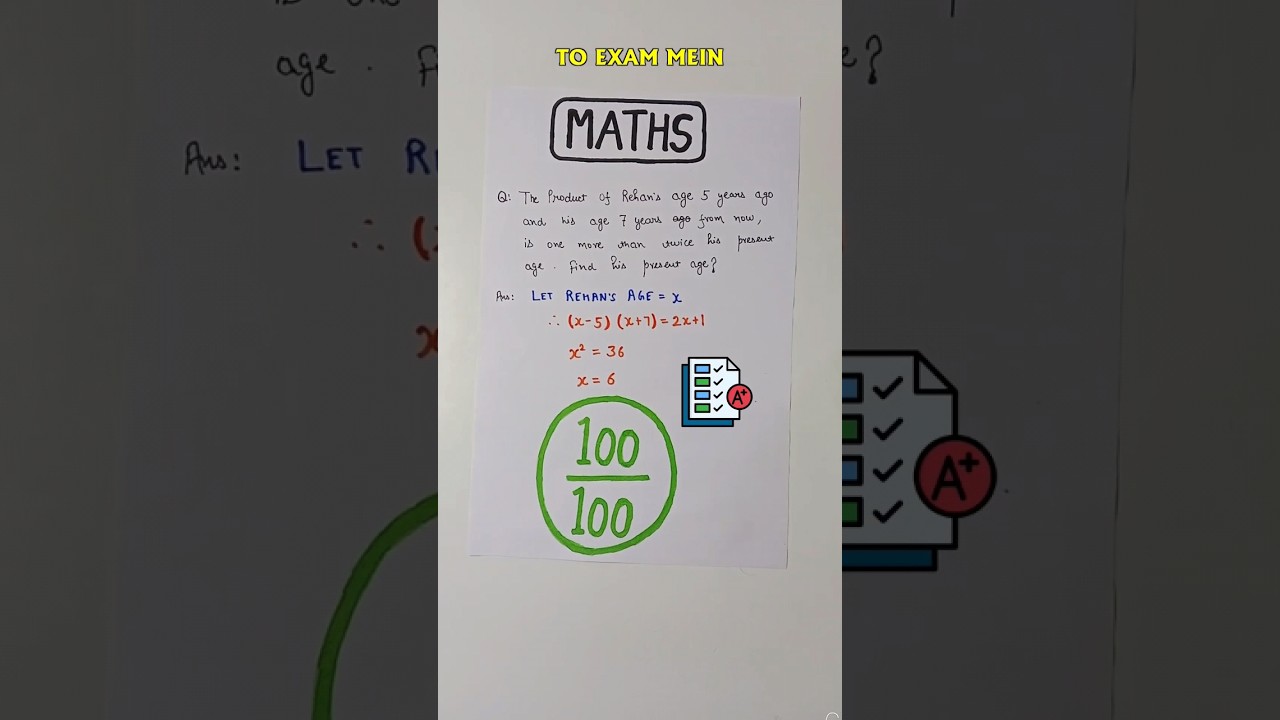 TO EXAM MEIN
MATHS
Q: The Product of Rehan's age 5 years ago
and his age 7 years ago from now,
is one more than twice his present
age. Find his present age?
Ans: LET REHAN'S AGE = x
∴ (x-5) (x+7) = 2x+1
x² = 36
x = 6
100
100
A+
age.
e?
Ans: LET
A+